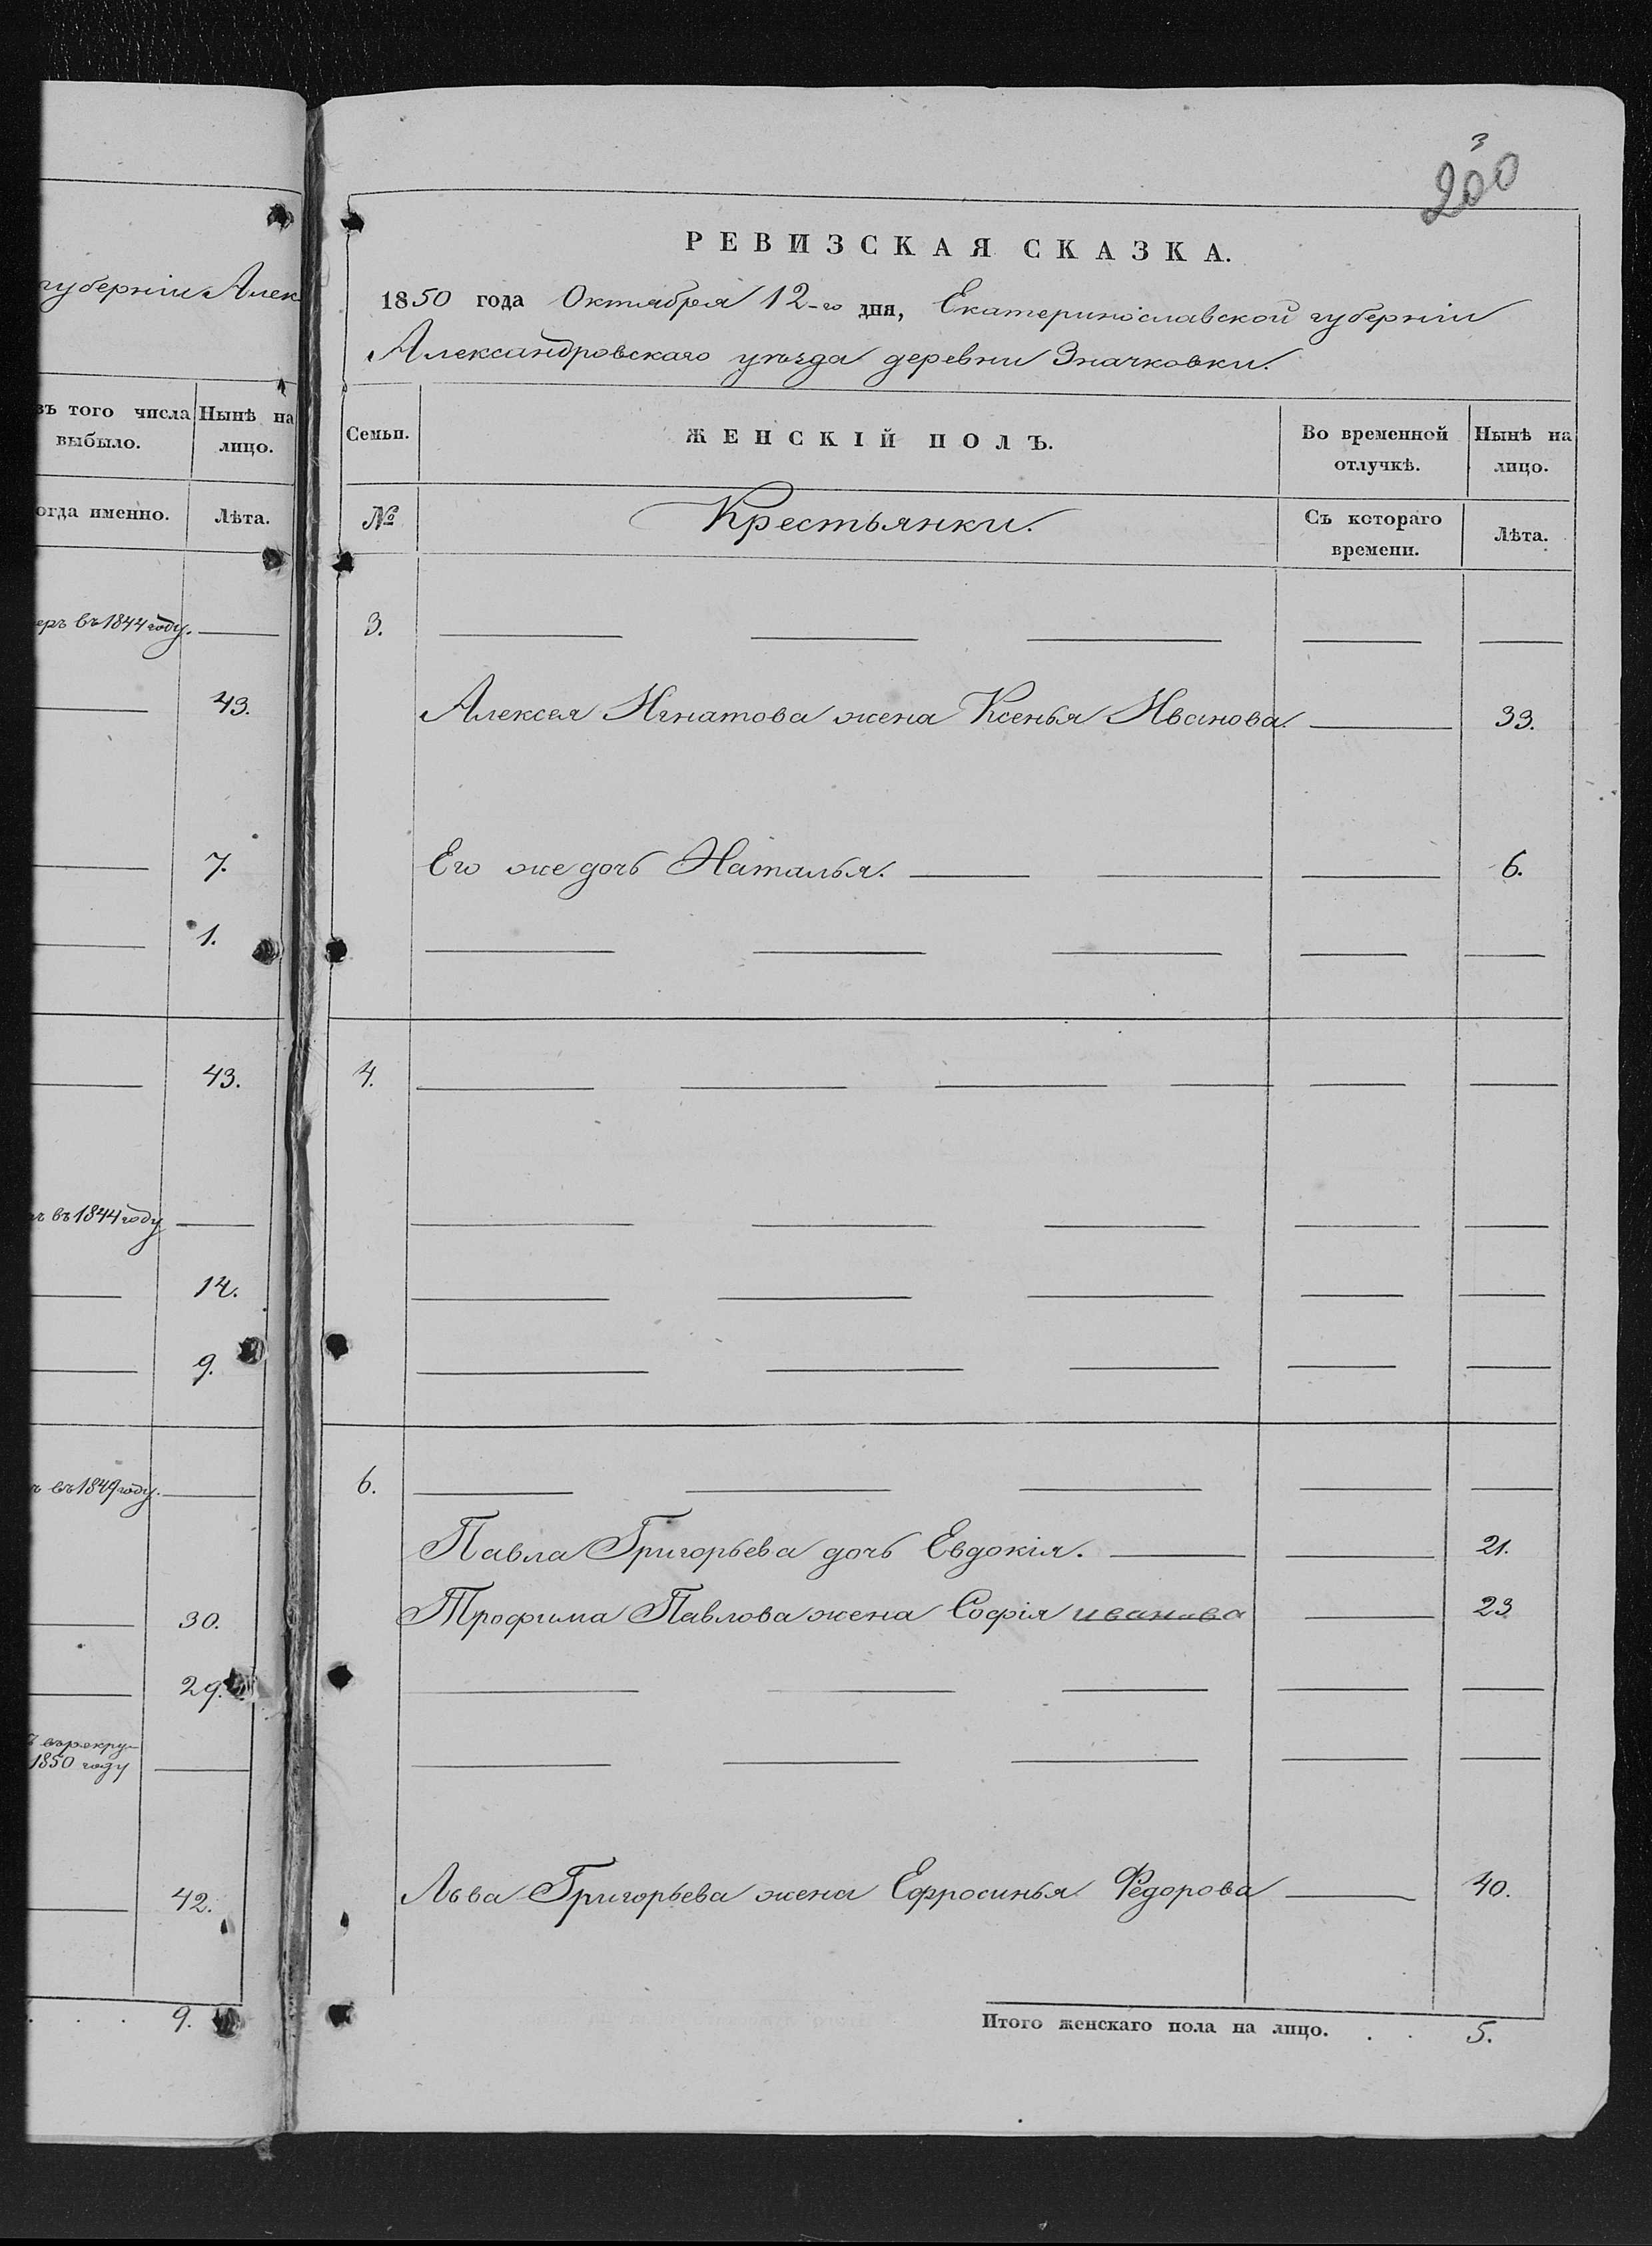 губерніи Алек
въ того числа
выбыло.
Нынѣ на
лицо.
огда именно.
Лѣта.
еръ въ 1844 году.
43.
7.
1.
43.
въ 1844 году
14.
9.
въ 1849 году.
30.
29.
въ рекру-
1850 году
42.
9.
3
200
РЕВИЗСКАЯ СКАЗКА.
1850 года Октября 12-го дня, Екатеринославской губерніи
Александровскаго уѣзда деревни Значковки.
Семьи.
ЖЕНСКІЙ ПОЛЪ.
Во временной
отлучкѣ.
Нынѣ на
лицо.
№
Крестьянки.
Съ котораго
времени.
Лѣта.
3.
Алексея Игнатова жена Ксенья Иванова. 33.
Его же дочь Наталья. 6.
4.
6.
Павла Григорьева дочь Евдокія. 21.
Трофима Павлова жена Софія иванова 23
Льва Григорьева жена Ефросинья Федорова 40.
Итого женскаго пола на лицо. . . 5.